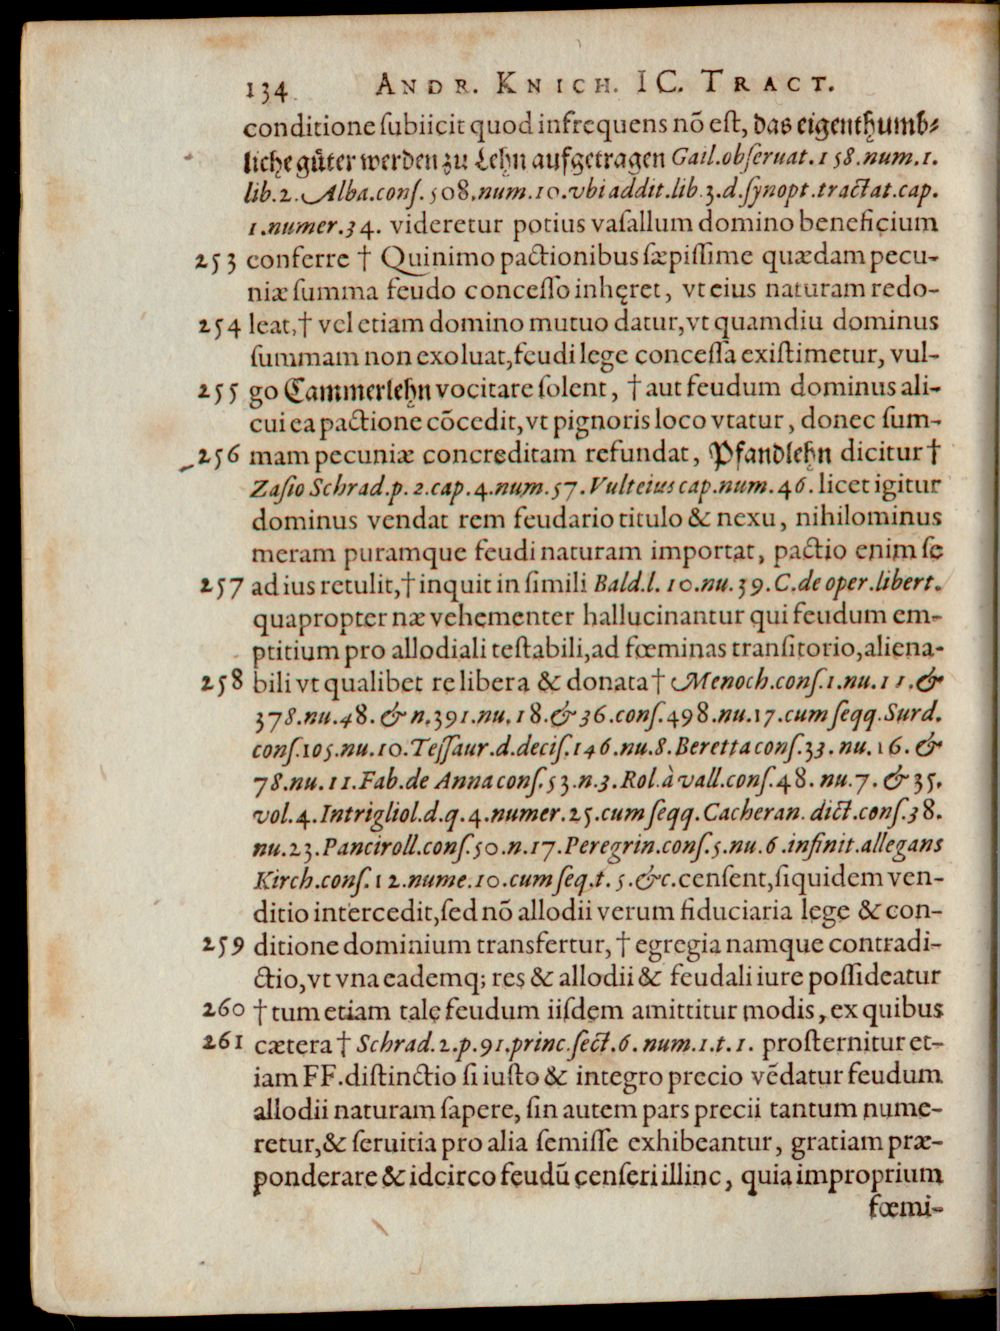 134 ANDR. KNICH. IC. TRACT.
conditione ſubiicit quod infrequens nõ eſt, das eigenthumb⸗
liche guͤter werden zu Lehn aufgetragen Gail.obſeruat.158.num.1.
lib.2. Alba.conſ.508.num.10.vbi addit.lib.3.d.ſynopt.tractat.cap.
1.numer.34. videretur potius vaſallum domino beneficium
253 conferre † Quinimo pactionibus ſæpiſſime quædam pecu-
niæ ſumma feudo conceſſo inhęret, vt eius naturam redo-
254 leat,† vel etiam domino mutuo datur,vt quamdiu dominus
ſummam non exoluat,feudi lege conceſſa exiſtimetur, vul-
255 go Cammerlehn vocitare ſolent, † aut feudum dominus ali-
cui ea pactione cõcedit,vt pignoris loco vtatur, donec ſum-
256 mam pecuniæ concreditam refundat, Pfandlehn dicitur †
Zaſio Schrad.p. 2.cap.4.num.57.Vulteius cap.num.46. licet igitur
dominus vendat rem feudario titulo & nexu, nihilominus
meram puramque feudi naturam importat, pactio enim ſe
257 ad ius retulit,† inquit in ſimili Bald.l. 10.nu.39.C.de oper.libert.
quapropter næ vehementer hallucinantur qui feudum em-
ptitium pro allodiali teſtabili,ad fœminas tranſitorio,aliena-
258 bili vt qualibet re libera & donata † Menoch.conſ.1.nu.11.&
378.nu.48. & n.391.nu.18.& 36.conſ.498.nu.17.cum ſeqq.Surd.
conſ.105.nu.10.Teſſaur.d.deciſ.146.nu.8.Beretta conſ.33.nu.16.&
78.nu.11.Fab.de Anna conſ.53.n.3.Rol.à vall.conſ.48. nu.7. & 35.
vol.4.Intrigliol.d.q.4.numer.25.cum ſeqq.Cacheran. dict.conſ.38.
nu.23.Panciroll.conſ.50.n.17.Peregrin.conſ.5.nu.6.infinit.allegans
Kirch.conſ.12.nume.10.cum ſeq.t. 5.&c.cenſent,ſiquidem ven-
ditio intercedit,ſed nõ allodii verum fiduciaria lege & con-
259 ditione dominium transfertur, † egregia namque contradi-
ctio,vt vna eademq; res & allodii & feudali iure poſſideatur
260 † tum etiam tale feudum iiſdem amittitur modis, ex quibus
261 cætera † Schrad.2.p.91.princ.ſect.6.num.1.t.1. proſternitur et-
iam FF.diſtinctio ſi iuſto & integro precio vẽdatur feudum
allodii naturam ſapere, ſin autem pars precii tantum nume-
retur,& ſeruitia pro alia ſemiſſe exhibeantur, gratiam præ-
ponderare & idcirco feudũ cenſeri illinc, quia improprium
fœmi-